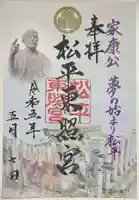 家康公
夢の始まり松平
奉拝
松平東照宮
松平
東照宮
令和五年
五月七日